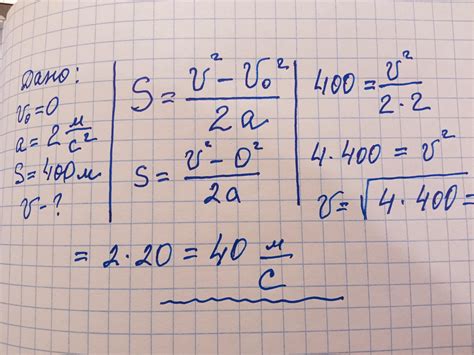 Дано:
v₀=0
a=2 м/с²
S=400м
v-?
S = (v² - v₀²)/(2a)
S = (v² - 0²)/(2a)
400 = v²/(2·2)
4·400 = v²
v = √(4·400) =
= 2·20 = 40 м/с